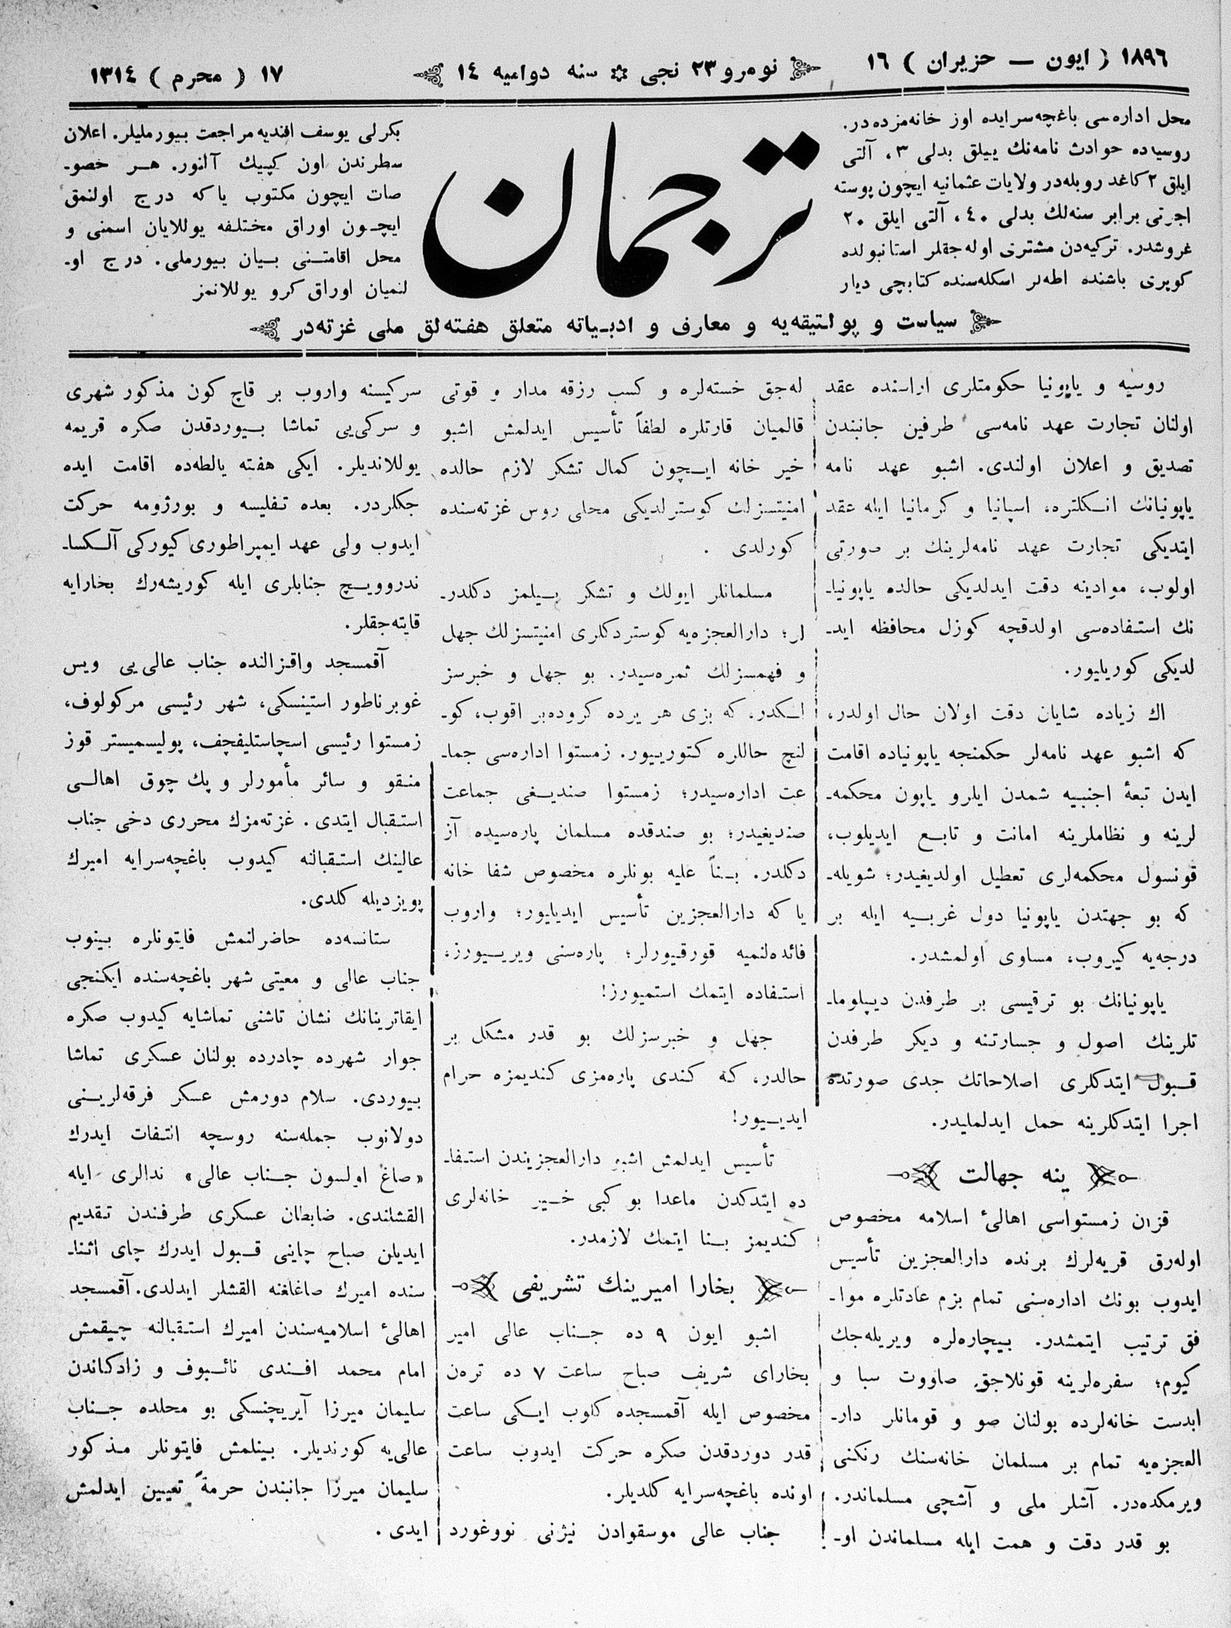 ١٨٩٦ ( ايون — حزيران ) ١٦
نومرو ٢٣ نجى ✡ سنه دواميه ١٤
١٧ ( محرم ) ١٣١٤
محل اداره‌سى باغچه‌سرايده اوز خانه‌مزده‌در.
روسياده حوادث نامه‌نك ييللق بدلى ٣، آلتى
ايلق ٢ كاغد روبله‌در ولايات عثمانيه ايچون پوسته
اجرتى برابر سنه‌لك بدلى ٤٠، آلتى ايلق ٢٠
غروشدر. تركيه‌دن مشترى اوله‌جقلر استانبولده
كوپرى باشنده اطه‌لر اسكله‌سنده كتابچى ديار
ترجمان
بكرلى يوسف افنديه مراجعت بيورمليلر. اعلان
سطرندن اون كپيك آلنور. هر خصو-
صات ايچون مكتوب ياكه درج اولنمق
ايچون اوراق مختلفه يوللايان اسمنى و
محل اقامتنى بيان بيورملى. درج او-
لنميان اوراق كرو يوللانمز
سياست و پولتيقه‌يه و معارف و ادبياته متعلق هفته‌لق ملى غزته‌در
روسيه و ياپونيا حكومتلرى اراسنده عقد
اولنان تجارت عهد نامه‌سى طرفين جانبندن
تصديق و اعلان اولندى. اشبو عهد نامه
ياپونيانك انكلتره، اسپانيا و كرمانيا ايله عقد
ايتديكى تجارت عهد نامه‌لرينك بر صورتى
اولوب، موادينه دقت ايدلديكى حالده ياپونيا-
نك استفاده‌سى اولدقچه كوزل محافظه ايد-
لديكى كوريليور.
اك زياده شايان دقت اولان حال اولدر،
كه اشبو عهد نامه‌لر حكمنجه ياپونياده اقامت
ايدن تبعۀ اجنبيه شمدن ايلرو ياپون محكمه-
لرينه و نظاملرينه امانت و تابع ايديلوب،
قونسول محكمه‌لرى تعطيل اولديغيدر؛ شويله-
كه بو جهتدن ياپونيا دول غربيه ايله بر
درجه‌يه كيروب، مساوى اولمشدر.
ياپونيانك بو ترقيسى بر طرفدن ديپلوما-
تلرينك اصول و جسارتنه و ديكر طرفدن
قبول ايتدكلرى اصلاحاتك جدى صورتده
اجرا ايتدكلرينه حمل ايدلمليدر.
ينه جهالت
قزان زمستواسى اهالئ اسلامه مخصوص
اوله‌رق قريه‌لرك برنده دارالعجزين تأسيس
ايدوب بونك اداره‌سنى تمام بزم عادتلره موا-
فق ترتيب ايتمشدر. بيچاره‌لره ويريله‌جك
كيوم؛ سفره‌لرينه قونلاجق صاووت سبا و
ابدست خانه‌لرده بولنان صو و قومانلر دار-
العجزه‌يه تمام بر مسلمان خانه‌سنك رنكنى
ويرمكده‌در. آشلر ملى و آشچى مسلماندر.
بو قدر دقت و همت ايله مسلماندن او-
له‌جق خسته‌لره و كسب رزقه مدار و قوتى
قالميان قارتلره لطفاً تأسيس ايدلمش اشبو
خير خانه ايچون كمال تشكر لازم حالده
امنيتسزلك كوسترلديكى محلى روس غزته‌سنده
كورلدى .
مسلمانلر ايولك و تشكر بيلمز دكلدر-
لر؛ دارالعجزه‌يه كوستردكلرى امنيتسزلك جهل
و فهمسزلك ثمره‌سيدر. بو جهل و خبرسز
لكدر، كه بزى هر يرده كروده‌بر اقوب، كو-
لنچ حاللره كتوربيور. زمستوا اداره‌سى جما-
عت اداره‌سيدر؛ زمستوا صنديغى جماعت
صنديغيدر؛ بو صندقده مسلمان پاره‌سيده آز
دكلدر. بناً عليه بونلره مخصوص شفا خانه
ياكه دارالعجزين تأسيس ايديليور؛ واروب
فائده‌لنميه قورقيورلر؛ پاره‌سنى ويريورز،
استفاده ايتمك استميورز!
جهل و خبرسزلك بو قدر مشكل بر
حالدر، كه كندى پاره‌مزى كنديمزه حرام
ايدييور!
تأسيس ايدلمش اشبو دارالعجزيندن استفا-
ده ايتدكدن ماعدا بو كبى خير خانه‌لرى
كنديمز بنا ايتمك لازمدر.
بخارا اميرينك تشريفى
اشبو ايون ٩ ده جناب عالى امير
بخاراى شريف صباح ساعت ٧ ده تره‌ن
مخصوص ايله آقمسجده كلوب ايكى ساعت
قدر دوردقدن صكره حركت ايدوب ساعت
اونده باغچه‌سرايه كلديلر.
جناب عالى موسقوادن نيژنى نووغورد
سركيسنه واروب بر قاچ كون مذكور شهرى
و سركى‌يى تماشا بيوردقدن صكره قريمه
يوللانديلر. ايكى هفته يالطه‌ده اقامت ايده
جكلردر. بعده تفليسه و بورژومه حركت
ايدوب ولى عهد ايمپراطورى كيوركى آلكسا-
ندروويچ جنابلرى ايله كوريشه‌رك بخارايه
قايته‌جقلر.
آقمسجد واقزالنده جناب عالى‌يى ويس
غوبرناطور استينسكى، شهر رئيسى مركولوف،
زمستوا رئيسى اسچاستليفچف، پوليسميستر قوز
منقو و سائر مأمورلر و پك چوق اهالى
استقبال ايتدى . غزته‌مزك محررى دخى جناب
عالينك استقبالنه كيدوب باغچه‌سرايه اميرك
پويزديله كلدى.
ستانسه‌ده حاضرلنمش فايتونلره بينوب
جناب عالى و معيتى شهر باغچه‌سنده ايكنجى
ايقاترينانك نشان تاشنى تماشايه كيدوب صكره
جوار شهرده چادرده بولنان عسكرى تماشا
بيوردى. سلام دورمش عسكر فرقه‌لرينى
دولانوب جمله‌سنه روسچه التفات ايدرك
«صاغ اولسون جناب عالى» ندالرى ايله
القشلندى. ضابطان عسكرى طرفندن تقديم
ايديلن صباح چاينى قبول ايدرك چاى اثنا-
سنده اميرك صاغلغنه القشلر ايدلدى. آقمسجد
اهالئ اسلاميه‌سندن اميرك استقبالنه چيقمش
امام محمد افندى نائبوف و زادكاندن
سليمان ميرزا آيريچنسكى بو محلده جناب
عالى‌يه كورنديلر. بينلمش فايتونلر مذكور
سليمان ميرزا جانبندن حرمةً تعيين ايدلمش
ايدى .